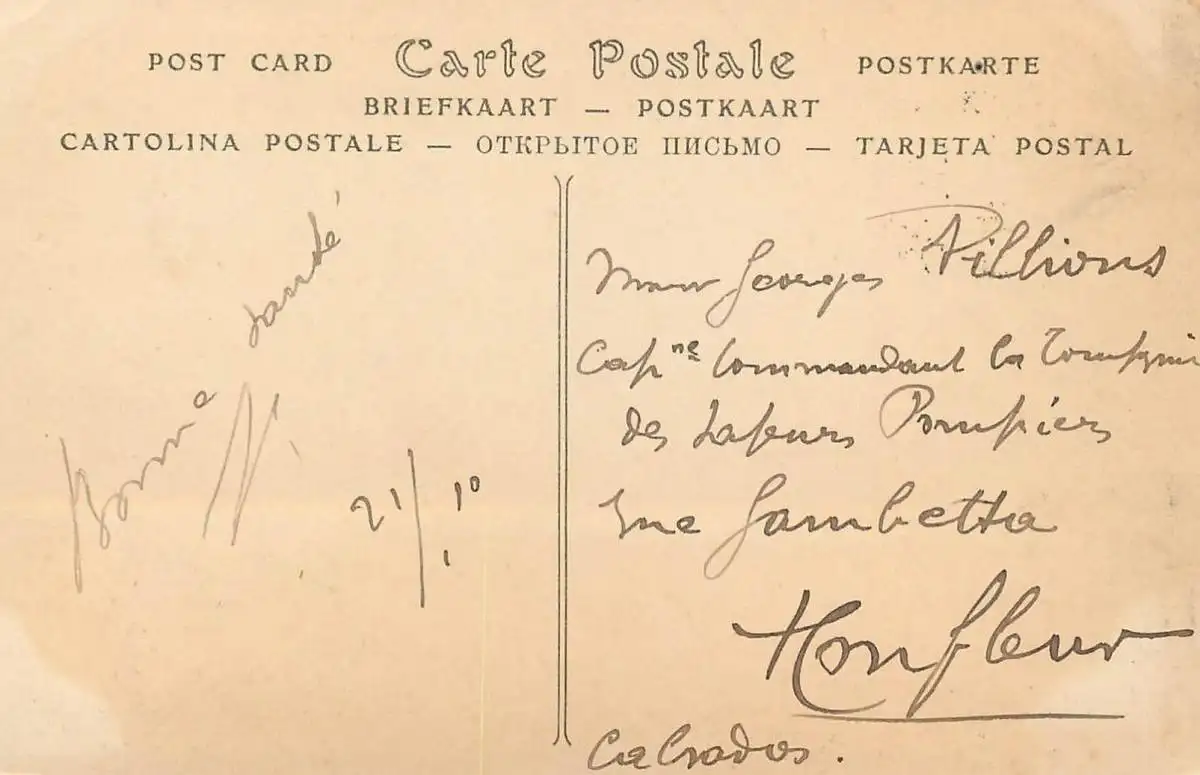 POST CARD Carte Postale POSTKARTE
BRIEFKAART — POSTKAART
CARTOLINA POSTALE — ОТКРЫТОЕ ПИСЬМО — TARJETA POSTAL
Bonne santé
21/10
Georges Pillions
Capne Commandant la Compagnie
des Sapeurs Pompiers
rue Gambetta
Honfleur
Calvados.